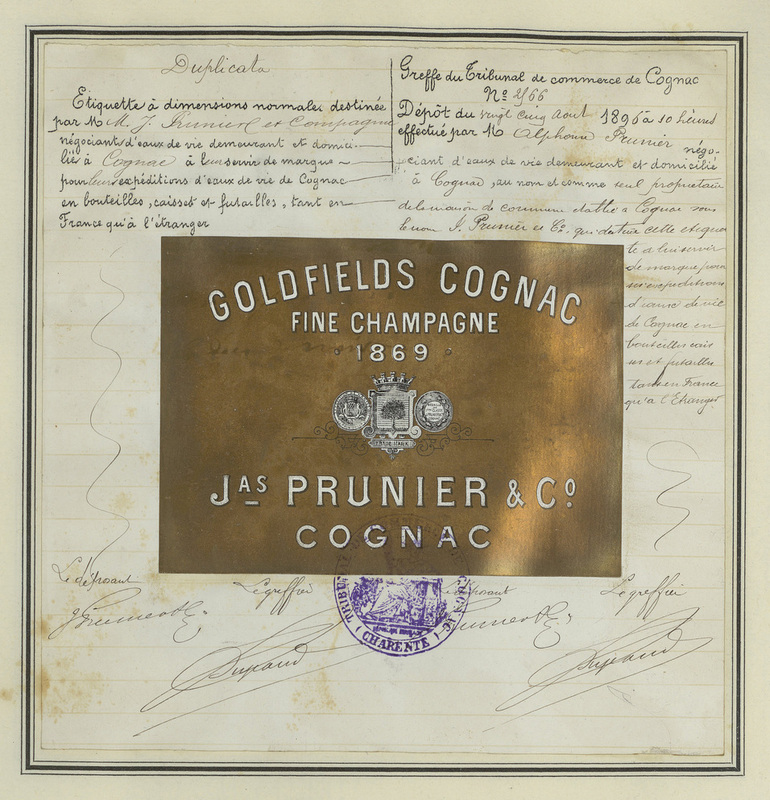 Duplicata
Etiquette à dimensions normales destinée
par M M. J. Prunier et Compagnie
négociants d'eaux de vie demeurant et domici-
liés à Cognac à leur servir de marque
pour leurs expéditions d'eaux de vie de Cognac
en bouteilles, caisses et futailles, tant en
France qu'à l'étranger
Greffe du Tribunal de commerce de Cognac
No 2/66
Dépôt du vingt cinq Août 1896 à 10 heures
effectué par M Alphonse Prunier négo-
ciant d'eaux de vie demeurant et domicilié
à Cognac, au nom et comme seul propriétaire
de la maison de commerce établie à Cognac sous
le nom J. Prunier et Co. qui destine cette étiquet
te à lui servir
de marque pour
ses expéditions
d'eaux de vie
de Cognac en
bouteilles cais
ses et futailles
tant en France
qu'à l'Etranger
GOLDFIELDS COGNAC
FINE CHAMPAGNE
1869
JAS PRUNIER & CO
COGNAC
Le déposant
Le greffier
déposant
Le greffier
J Prunier & Co
Prunier & Co
TRIBU
COGNAC
(CHARENTE)